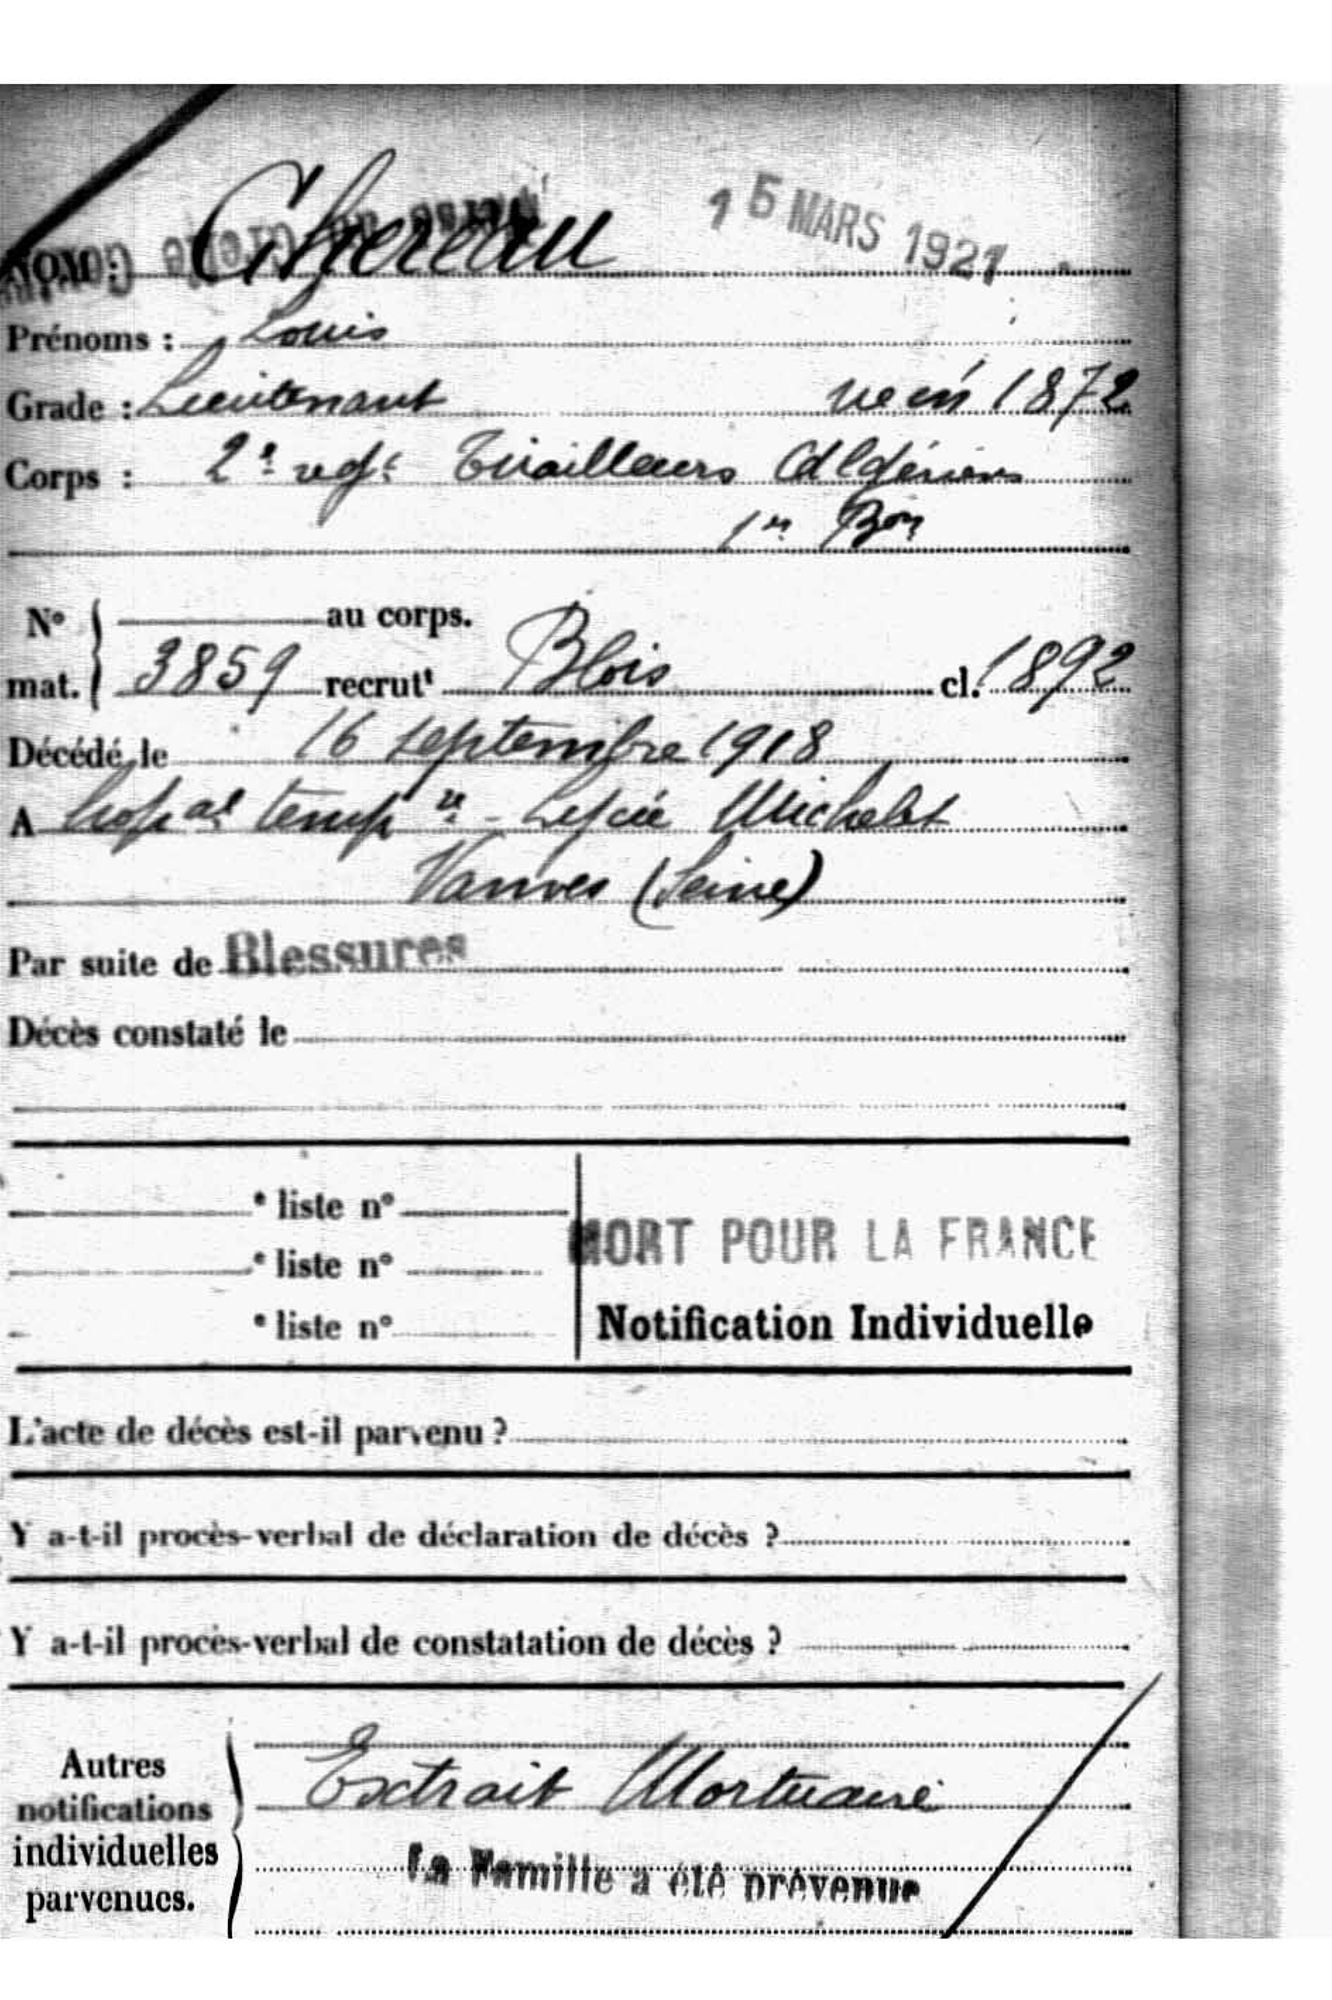 15 MARS 1921
NOM : Chereau
Prénoms : Louis
Grade : Lieutenant né en 1872
Corps : 2e regt Tirailleurs Algériens
1er Bon
No au corps.
mat. 3859 recrutt Blois cl. 1892
Décédé le 16 septembre 1918
A hopal tempre - Lycée Michelet
Vanves (Seine)
Par suite de Blessures
Décès constaté le
* liste n°
* liste n°
* liste n°
MORT POUR LA FRANCE
Notification Individuelle
L'acte de décès est-il parvenu ?
Y a-t-il procès-verbal de déclaration de décès ?
Y a-t-il procès-verbal de constatation de décès ?
Autres
notifications
individuelles
parvenues.
Extrait Mortuaire
La Famille a été prévenue